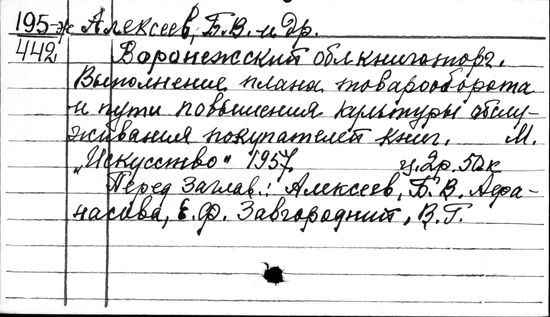 195-ж Алексеев, Б.В. и др.
442 Воронежский облкниготорг.
Выполнение плана товарооборота
и пути повышения культуры обслу-
живания покупателей книг. М.
„Искусство" 1957. ц. 2р. 50к
Перед заглав.: Алексеев, Б.В. Афа-
насова, Е.Ф. Завгородний, В.Г.